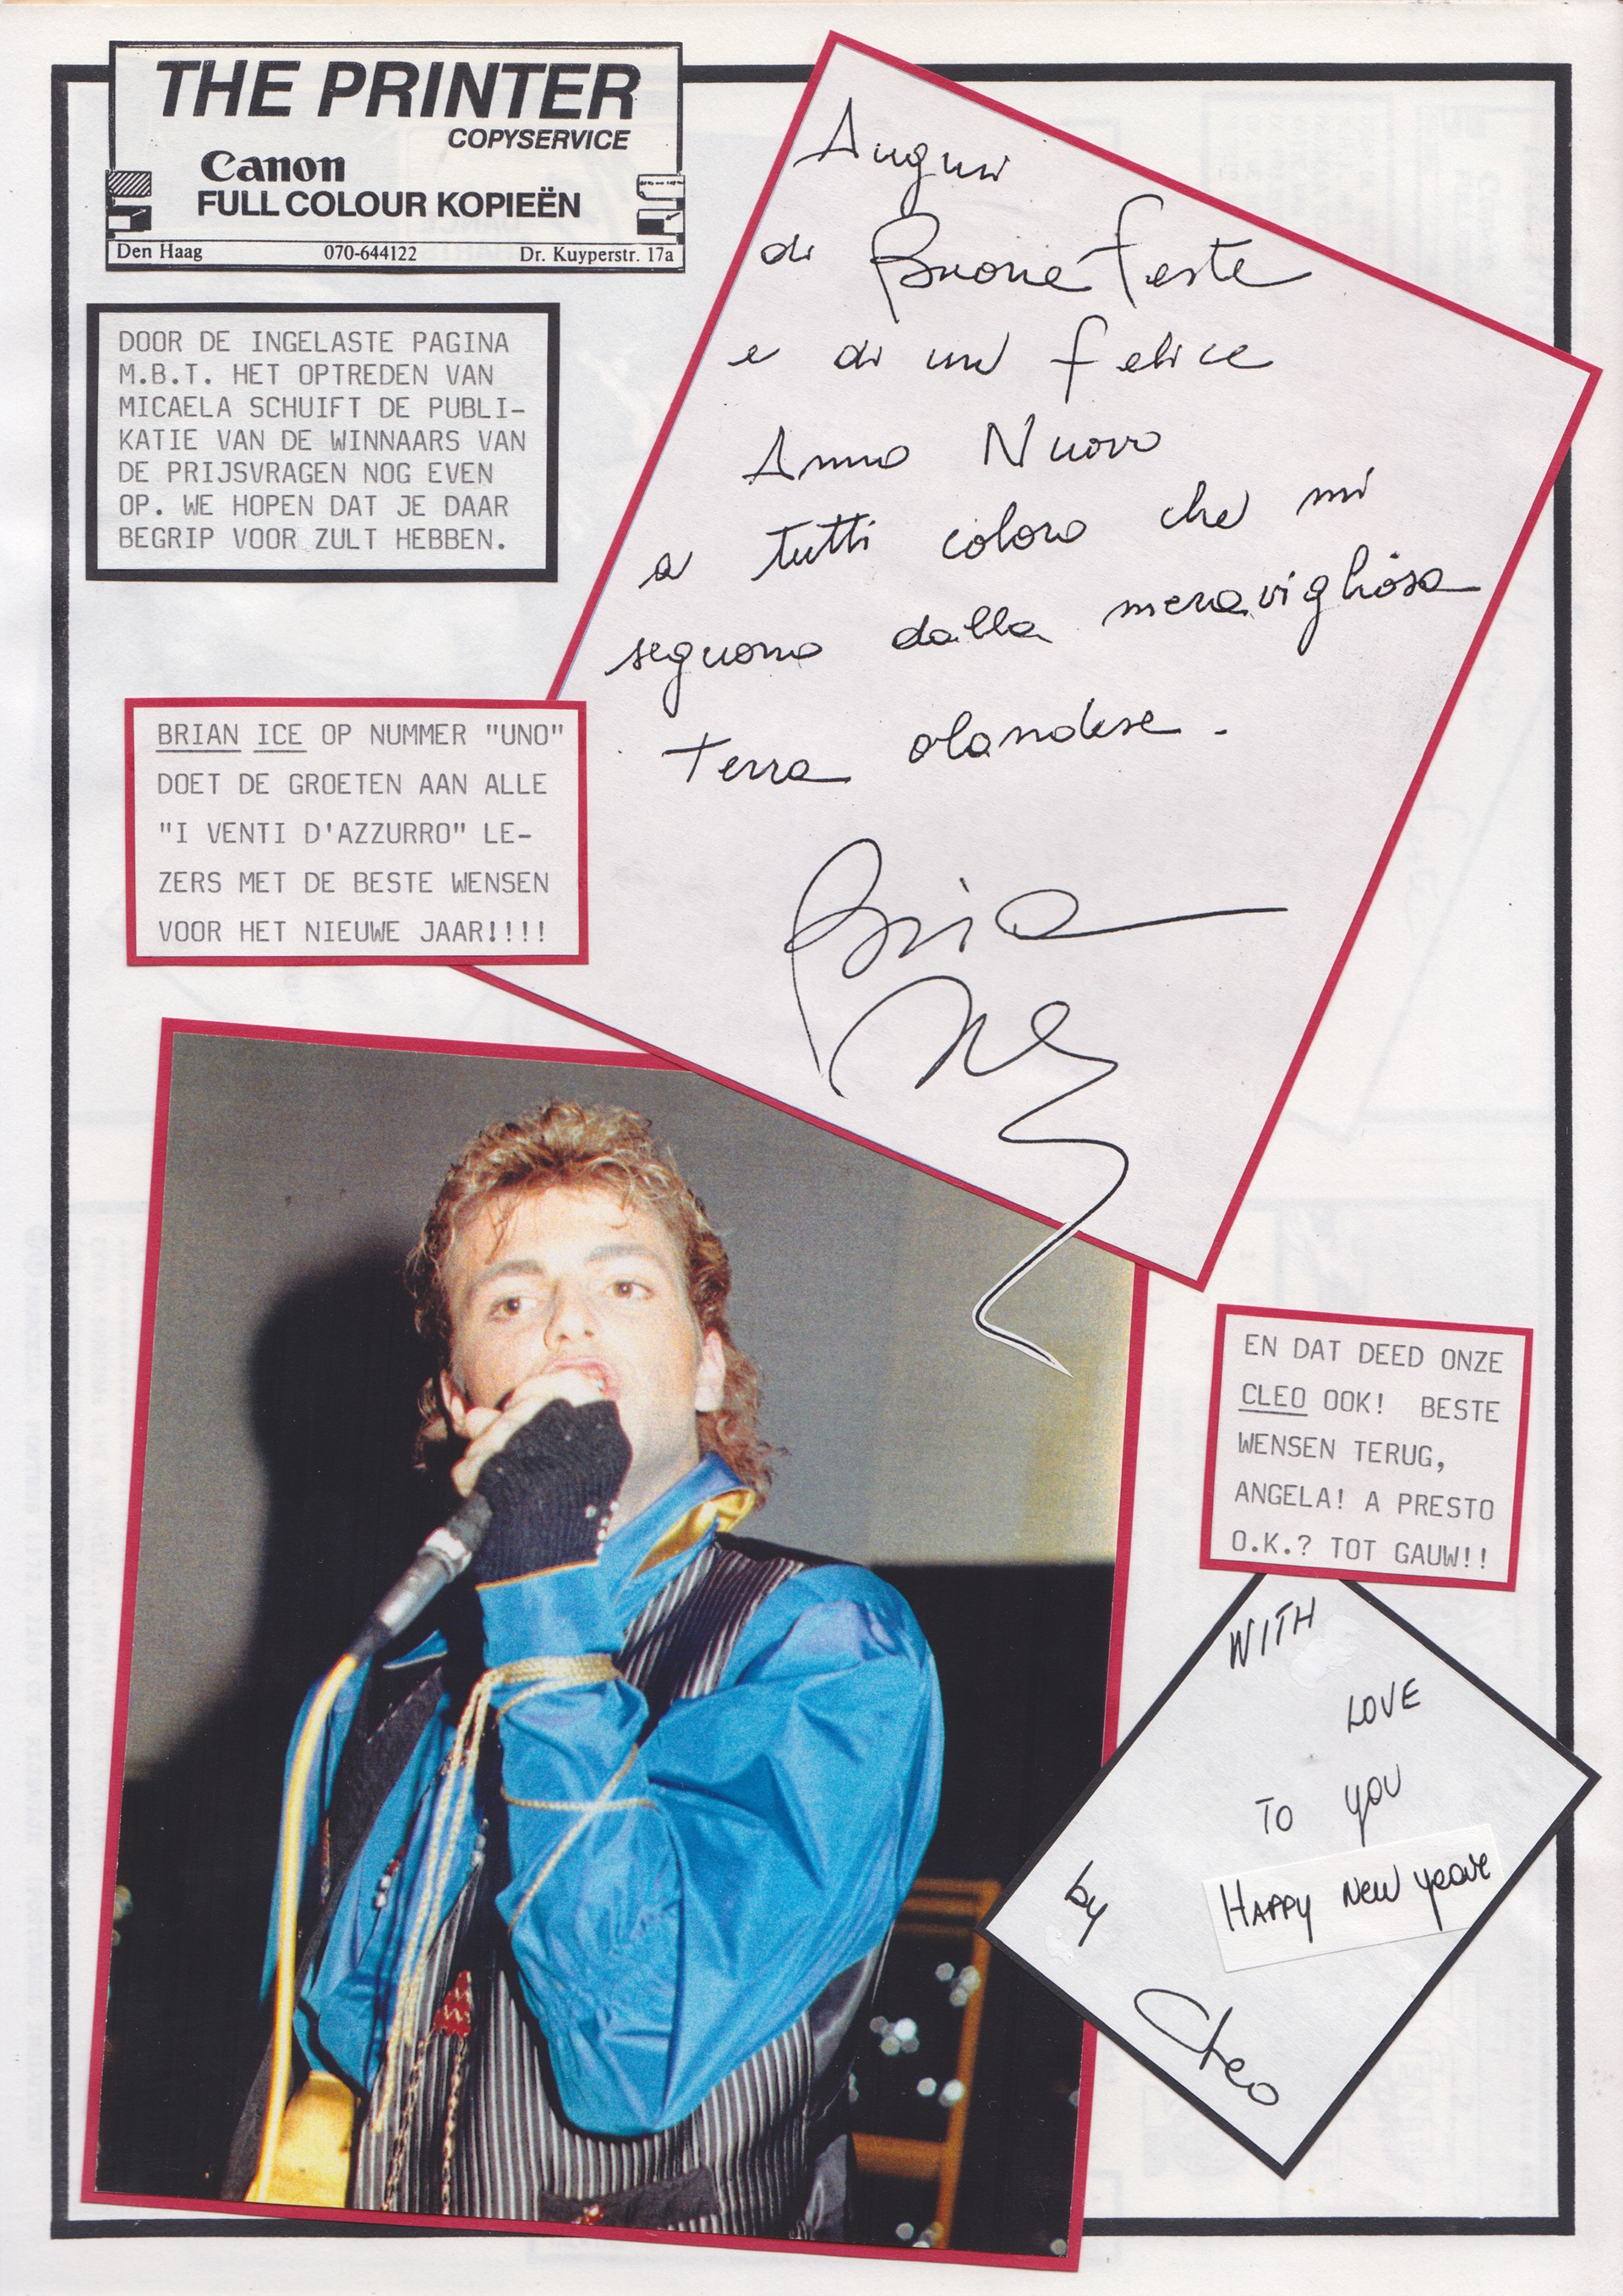 THE PRINTER
COPYSERVICE
Canon
FULL COLOUR KOPIEËN
Den Haag 070-644122 Dr. Kuyperstr. 17a
DOOR DE INGELASTE PAGINA
M.B.T. HET OPTREDEN VAN
MICAELA SCHUIFT DE PUBLI-
KATIE VAN DE WINNAARS VAN
DE PRIJSVRAGEN NOG EVEN
OP. WE HOPEN DAT JE DAAR
BEGRIP VOOR ZULT HEBBEN.
Auguri
di Buone Feste
e di un felice
Anno Nuovo
a tutti coloro che mi
seguono dalla meravigliosa
Terra olandese.
Brian
Ice
BRIAN ICE OP NUMMER "UNO"
DOET DE GROETEN AAN ALLE
"I VENTI D'AZZURRO" LE-
ZERS MET DE BESTE WENSEN
VOOR HET NIEUWE JAAR!!!!
EN DAT DEED ONZE
CLEO OOK! BESTE
WENSEN TERUG,
ANGELA! A PRESTO
O.K.? TOT GAUW!!
WITH
LOVE
TO YOU
HAPPY NEW YEAR
by
Cleo